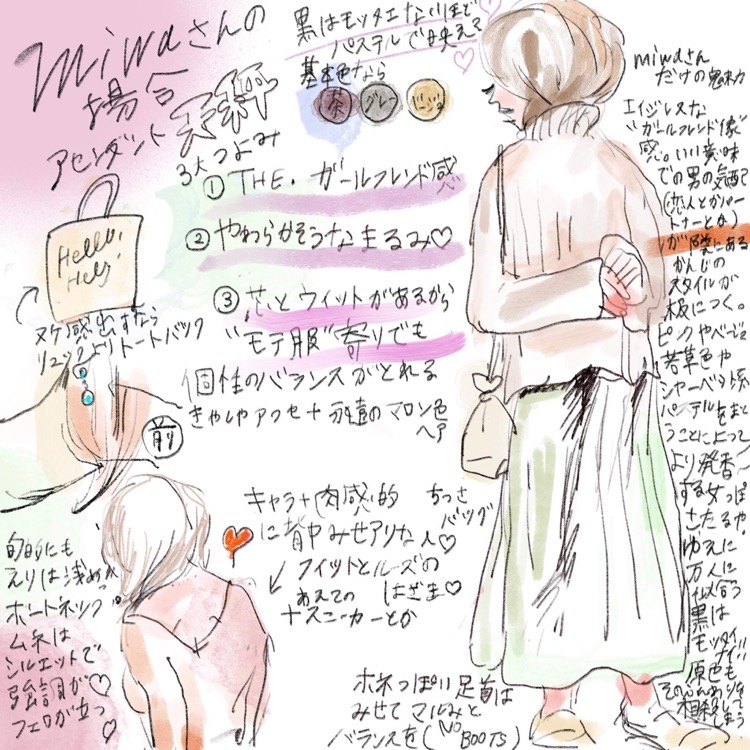 miwaさんの
場合
アセンダント 天秤
黒はモッタエないほど
パステルで映える
基本色なら
茶 グレー ベージュ
3大つよみ
① THE・ガールフレンド感
② やわらかそうなまるみ♡
③ 芯とウィットがあるから
"モテ服"寄りでも
個性のバランスがとれる
きゃしゃアクセ+永遠のマロン色
ヘア
Hello,
Hey!
ヌケ感出すなら
リュックよりトートバック
前
キャラ+肉感的
に背中みせアリな人♡
フィットとルーズの
あえての はざま♡
+スニーカーとか
ちっさ
バッグ
骨的にも
えりは浅めか
ボートネックで
ムネは
シルエットで
強調が♡
フェロが立つ♡
ホネっぽい足首は
みせてマルみと
バランスを(NO BOOTS)
miwaさん
だけの魅力
エイジレスな
"ガールフレンド像"
感。いい意味
での男の気配
(恋人とかパー
トナーとか)
が隣にある
かんじの
スタイルが
板につく。
ピンクやベージュ
若草色や
シャーベット系
パステルをまと
うことによって
より発香
する女っぽ
さたるや
ゆえに
万人に
似合う
黒は
モッタイ
ナイ!!
原色も
相殺して
しまう